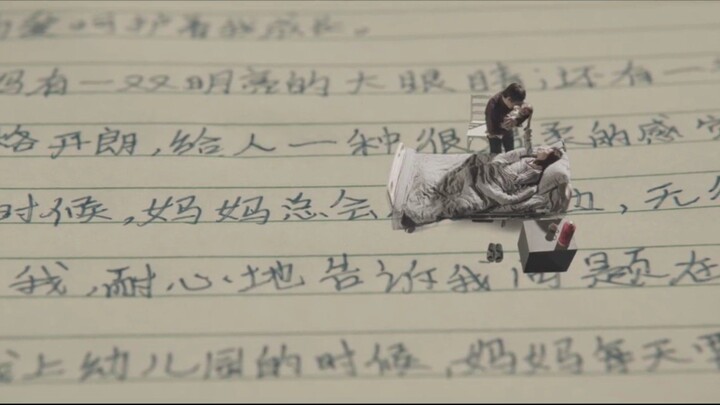 爱呵护着我成长。
妈有一双明亮的大眼睛;还有一
格开朗,给人一种很柔的感觉
时候,妈妈总会 ,无
我,耐心地告诉我问题在
上幼儿园的时候,妈妈每天要